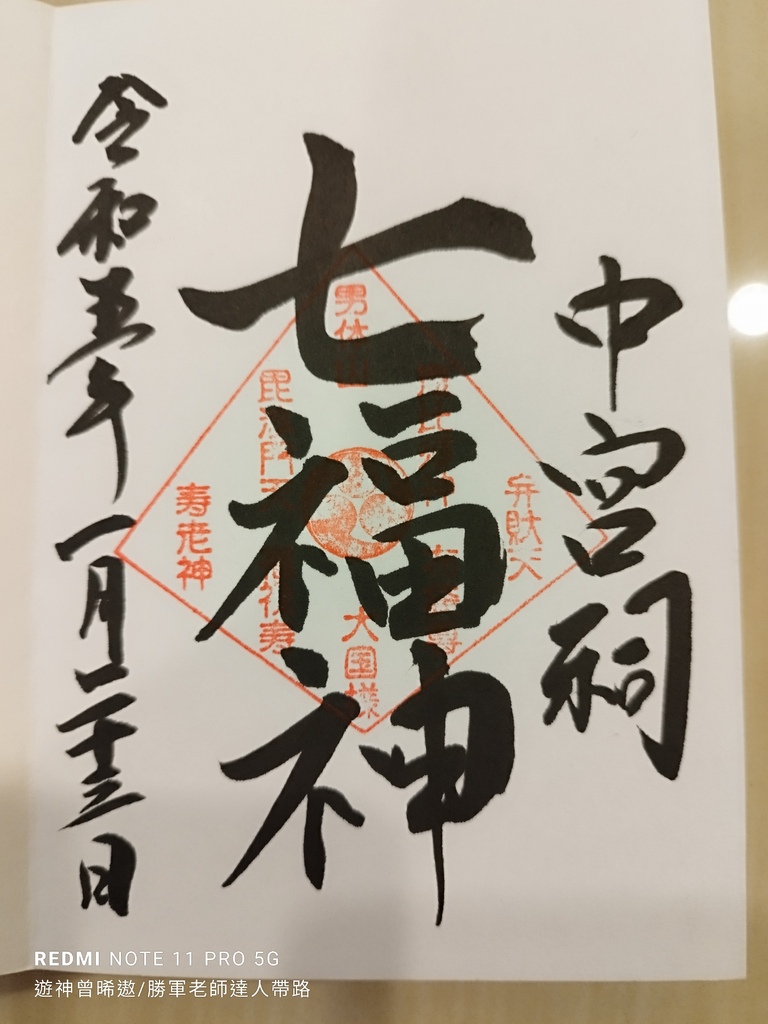 中宮祠
七福神
令和五年一月二十三日
弁財天
大国様
寿老神
REDMI NOTE 11 PRO 5G
遊神曾晞遨/勝軍老師達人帶路